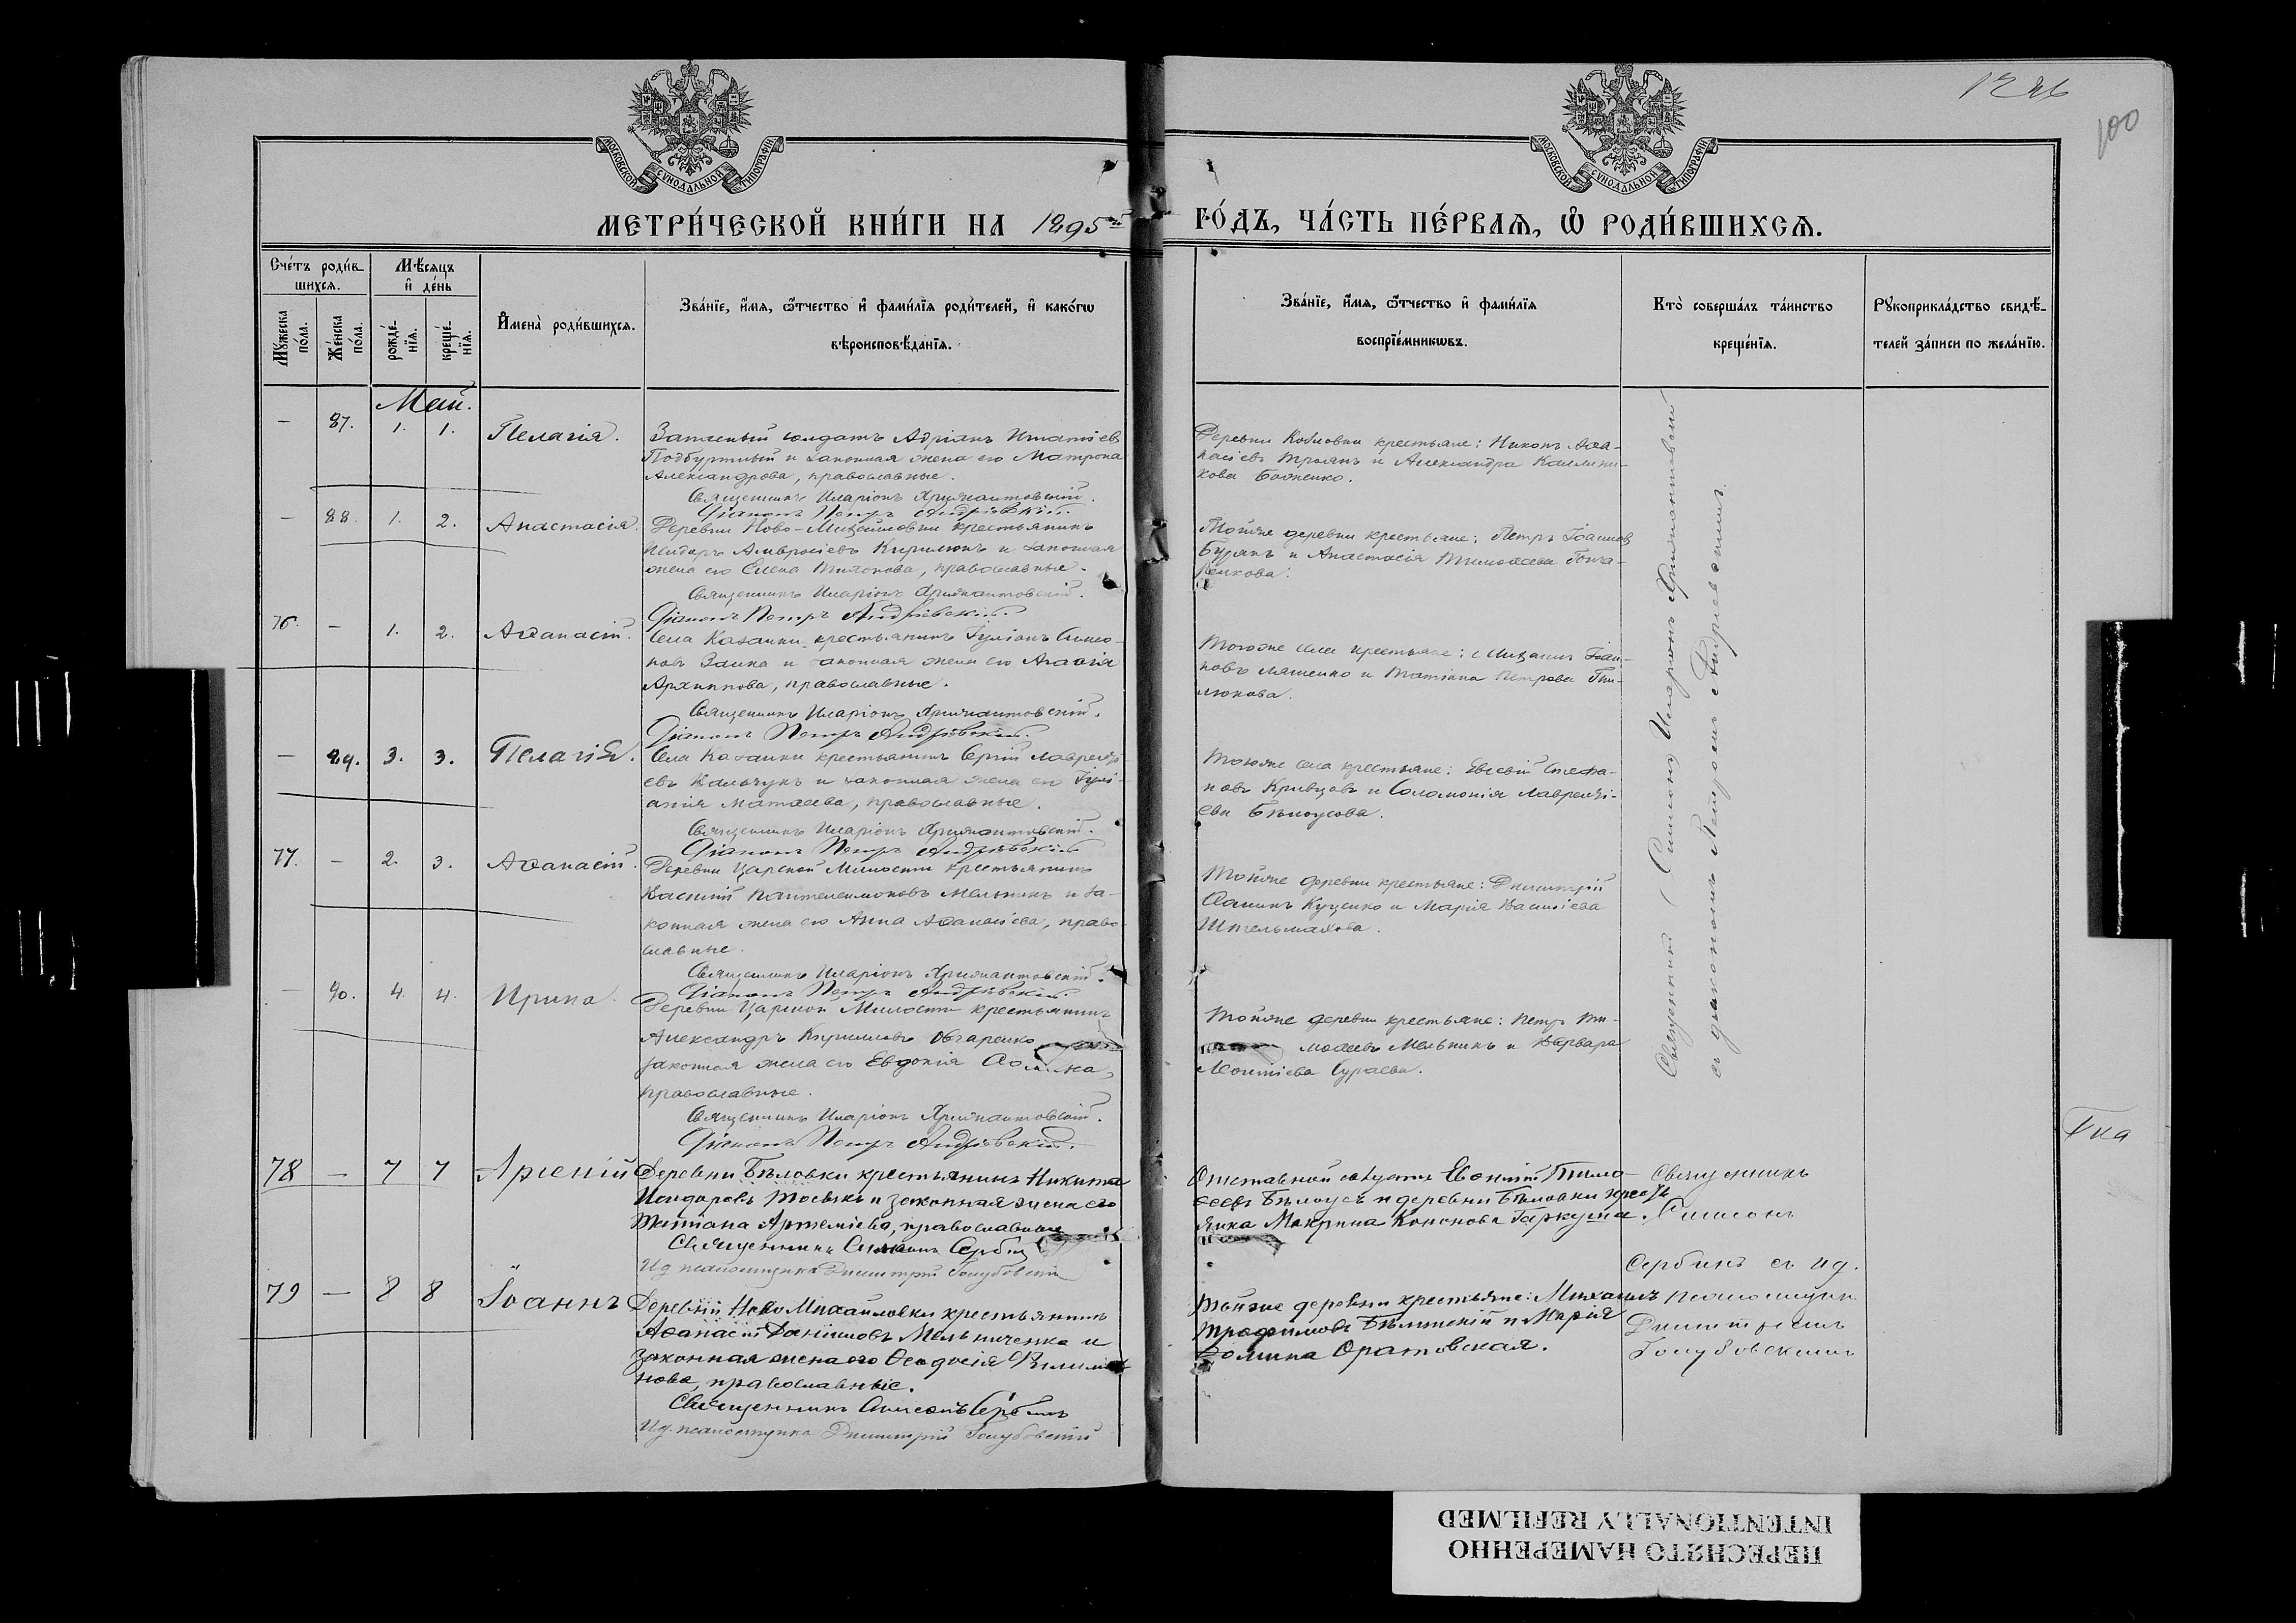 1226
100
МОСКОВСКОЙ СУНОДАЛЬНОЙ ТИПОГРАФІИ
МОСКОВСКОЙ СУНОДАЛЬНОЙ ТИПОГРАФІИ
МЕТРИ́ЧЕСКОЙ КНИ́ГИ НА 1895й ГО́ДЪ, ЧА́СТЬ ПЕ́РВАЯ, Ѡ РОДИ́ВШИХСЯ.
Сче́тъ роди́в-
шихся.
Мѣ́сяцъ
и де́нь
Му́жеска
по́ла.
Же́нска
по́ла.
рожде́-
нїя.
креще́-
нїя.
И҆мена̀ роди́вшихся.
Зва́нїе, и҆́мя, ѻ҆́тчество и҆ фами́лїя роди́телей, и҆ како́гѡ
вѣроисповѣ́данїя.
Зва́нїе, и҆́мя, ѻ҆́тчество и҆ фами́лїя
воспрїе́мникѡвъ.
Кто̀ соверша́лъ та́инство
креще́нїя.
Рꙋкоприкла́дство свидѣ́-
телей за́писи по жела́нїю.
Май.
— 87. 1. 1. Пелагія.
Запасный солдатъ Адріанъ Игнатіевъ
Подбуртный и законная жена его Матрона
Александрова, православные.
Священникъ Иларіонъ
Діаконъ Петръ Андріевскій.
Деревни крестьяне: Никонъ Аѳа-
насіевъ Троянъ и Александра Каллини-
кова Боженко.
— 88. 1. 2. Анастасія.
Деревни Ново-Михайловки крестьянинъ
Исидоръ Амвросіевъ Кирилюкъ и законная
жена его Елена Тихонова, православные.
Священникъ Иларіонъ
Діаконъ Петръ Андріевскій.
Тойже деревни крестьяне: Петръ Іоанновъ
Бурянъ и Анастасія Тимоѳеева Гонча-
ренкова.
76. — 1. 2. Аѳанасій.
Села Казанки крестьянинъ Іуліанъ Симо-
новъ Заика и законная жена его Агаѳія
Архиппова, православные.
Священникъ Иларіонъ
Діаконъ Петръ Андріевскій.
Тогоже села крестьяне: Михаилъ Іоан-
новъ Ляшенко и Татіана Петрова
— 89. 3. 3. Пелагія.
Села Казанки крестьянинъ Сергій Лавренті-
евъ Кальчукъ и законная жена его Іулі-
анія Матѳеева, православные.
Священникъ Иларіонъ
Діаконъ Петръ Андріевскій
Тогоже села крестьяне: Евсевій Стефа-
новъ Кривцовъ и Соломонія Лавренті-
ева Бѣлоусова.
77. — 2. 3. Аѳанасій.
Деревни Царской Милости крестьянинъ
Василій Пантелеимоновъ Мельникъ и за-
конная жена его Анна Аѳанасіева, право-
славные.
Священникъ Иларіонъ
Діаконъ Петръ Андріевскій.
Тойже деревни крестьяне: Димитрій
Куценко и Марія Василіева
Штельмахова.
— 90. 4. 4. Ирина.
Деревни Царской Милости крестьянинъ
Александръ Кирилловъ Овчаренко
законная жена его Евдокія
православные.
Священникъ Иларіонъ
Діаконъ Петръ Андріевскій.
Тойже деревни крестьяне: Петръ Ти-
моѳеевъ Мельникъ и Варвара
Леонтіева Сураева.
Священникъ Симеонъ Иларіонъ
съ діакономъ Петромъ Андріевскимъ.
78 — 7 7 Арсеній
Деревни Бѣловки крестьянинъ Никита
Исидоровъ и законная жена его
Татіана Артеміева, православные
Священникъ Симеонъ Сербинъ
Ид псаломщика Димитрій Голубовскій
Отставной солдатъ Евѳимій Тимо-
ѳеевъ Бѣлоусъ и деревни Бѣловки кресть
янка Макрина Кононова Гаркуша.
Священникъ
Симеонъ
Сербинъ съ ид.
псаломщик
Димитріемъ
Голубовскимъ
79 — 8 8 Іоаннъ
Деревни Ново Михайловки крестьянинъ
Аѳанасій Даніиловъ Мельниченко и
законная жена его Ѳеодосія Филимо
нова, православные.
Священникъ Симеонъ Сербинъ
Ид. псаломщика Димитрій Голубовскій
Тойже деревни крестьяне: Михаилъ
Трофимовъ и Марія
Ѳомина Оратовская.
ПЕРЕСНЯТО НАМЕРЕННО
INTENTIONALLY REFILMED